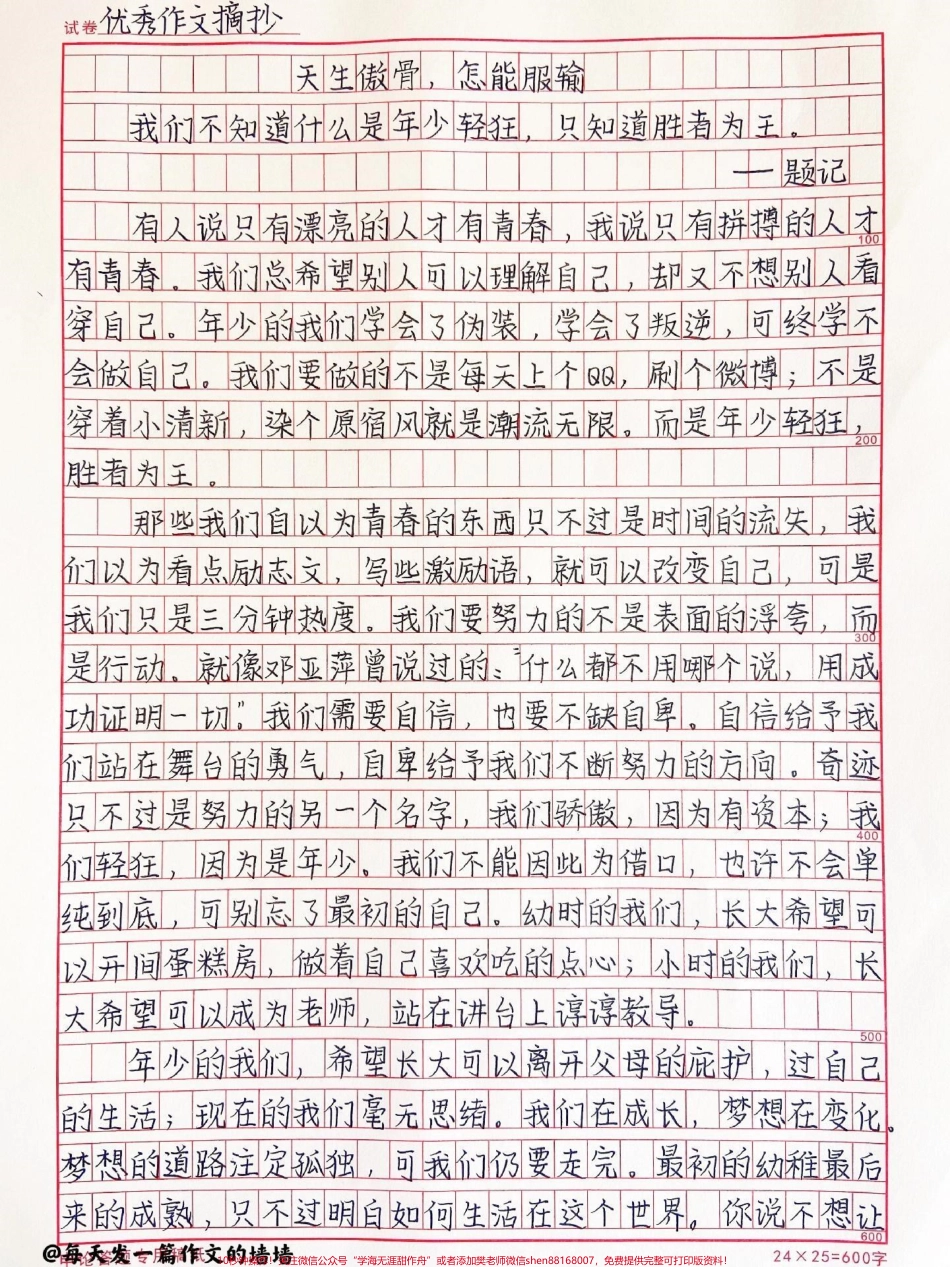 试卷 优秀作文摘抄
天生傲骨，怎能服输
我们不知道什么是年少轻狂，只知道胜者为王。
——题记
有人说只有漂亮的人才有青春，我说只有拼搏的人才
100
有青春。我们总希望别人可以理解自己，却又不想别人看
穿自己。年少的我们学会了伪装，学会了叛逆，可终学不
会做自己。我们要做的不是每天上个QQ，刷个微博；不是
穿着小清新，染个原宿风就是潮流无限。而是年少轻狂，
200
胜者为王。
那些我们自以为青春的东西只不过是时间的流失，我
们以为看点励志文，写些激励语，就可以改变自己，可是
我们只是三分钟热度。我们要努力的不是表面的浮夸，而
300
是行动。就像邓亚萍曾说过的：“什么都不用哪个说，用成
功证明一切”。我们需要自信，也要不缺自卑。自信给予我
们站在舞台的勇气，自卑给予我们不断努力的方向。奇迹
只不过是努力的另一个名字，我们骄傲，因为有资本；我
400
们轻狂，因为是年少。我们不能因此为借口，也许不会单
纯到底，可别忘了最初的自己。幼时的我们，长大希望可
以开间蛋糕房，做着自己喜欢吃的点心；小时的我们，长
大希望可以成为老师，站在讲台上谆谆教导。
500
年少的我们，希望长大可以离开父母的庇护，过自己
的生活；现在的我们毫无思绪。我们在成长，梦想在变化。
梦想的道路注定孤独，可我们仍要走完。最初的幼稚最后
来的成熟，只不过明白如何生活在这个世界。你说不想让
600
@每天发一篇作文的墙墙
关注微信公众号“学海无涯甜作舟”或者添加樊老师微信shen88168007，免费提供完整可打印版资料！
24×25=600字